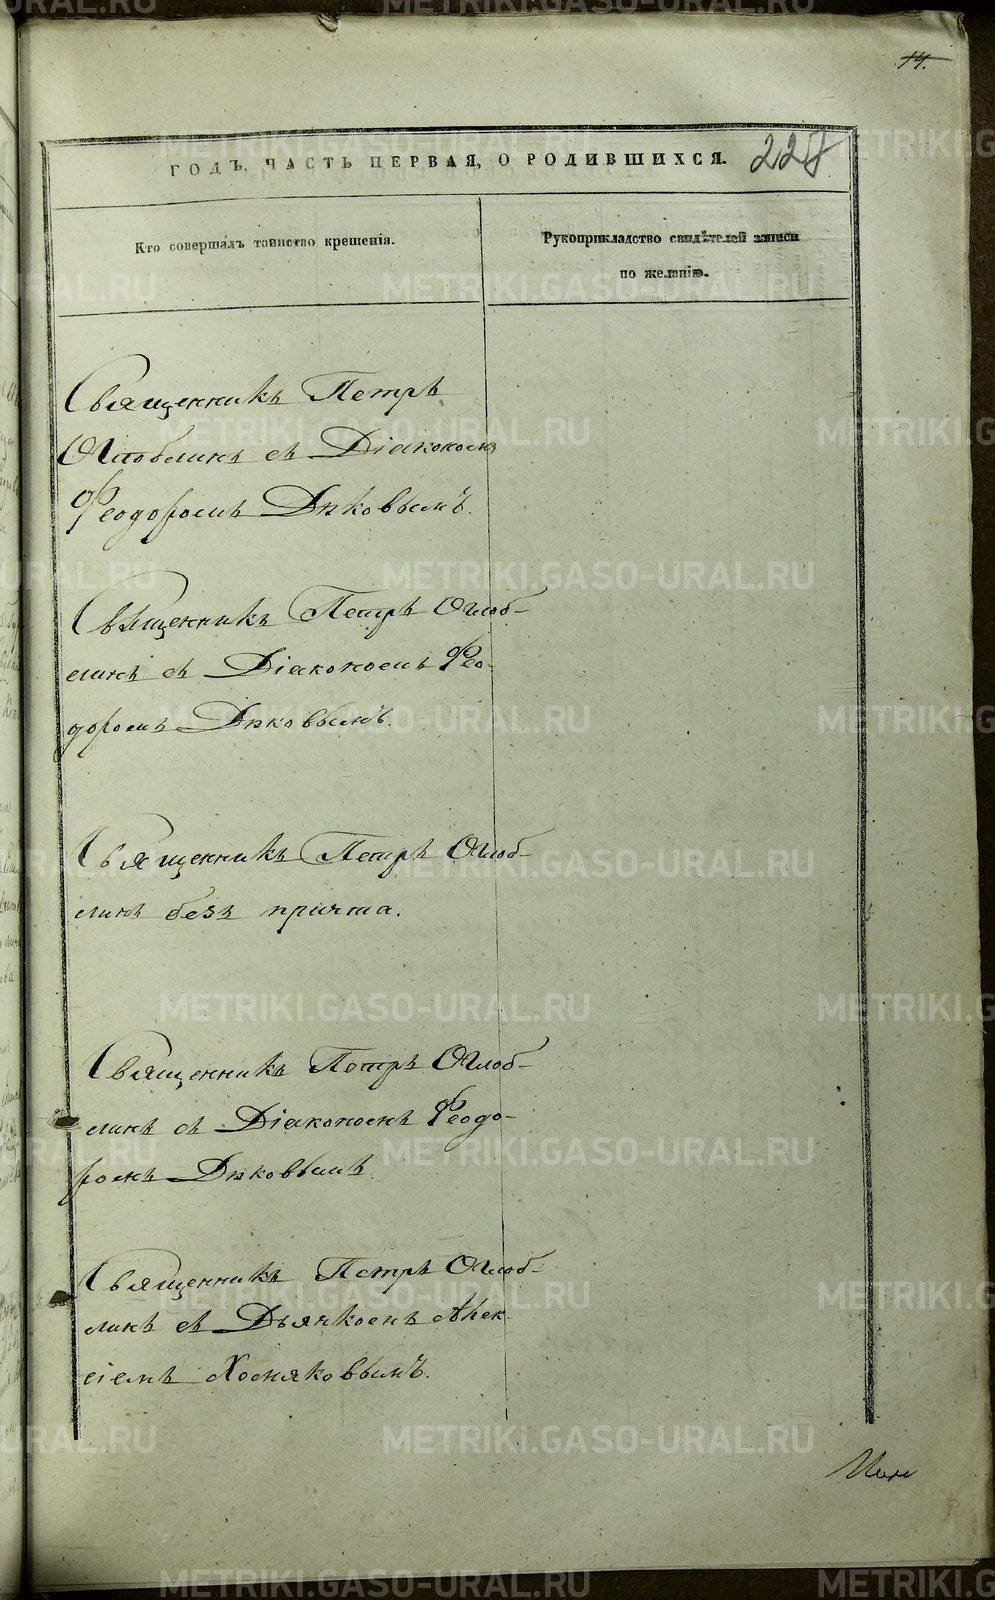 14.
ГОДЪ, ЧАСТЬ ПЕРВАЯ, О РОДИВШИХСЯ. 228
Кто совершалъ таинство крещенія.
Рукоприкладство свидѣтелей записи
по желанію.
Священникъ Петръ
Оглоблинъ съ Діакономъ
Феодоромъ Дьяковымъ.
Священникъ Петръ Оглоб-
линъ съ Діакономъ Фео-
доромъ Дьяковымъ.
Священникъ Петръ Оглоб-
линъ безъ причта.
Священникъ Петръ Оглоб-
линъ съ Діакономъ Феодо-
ромъ Дьяковымъ
Священникъ Петръ Оглоб-
линъ съ Дьячкомъ Алек-
сіемъ Хомяковымъ.
METRIKI.GASO-URAL.RU